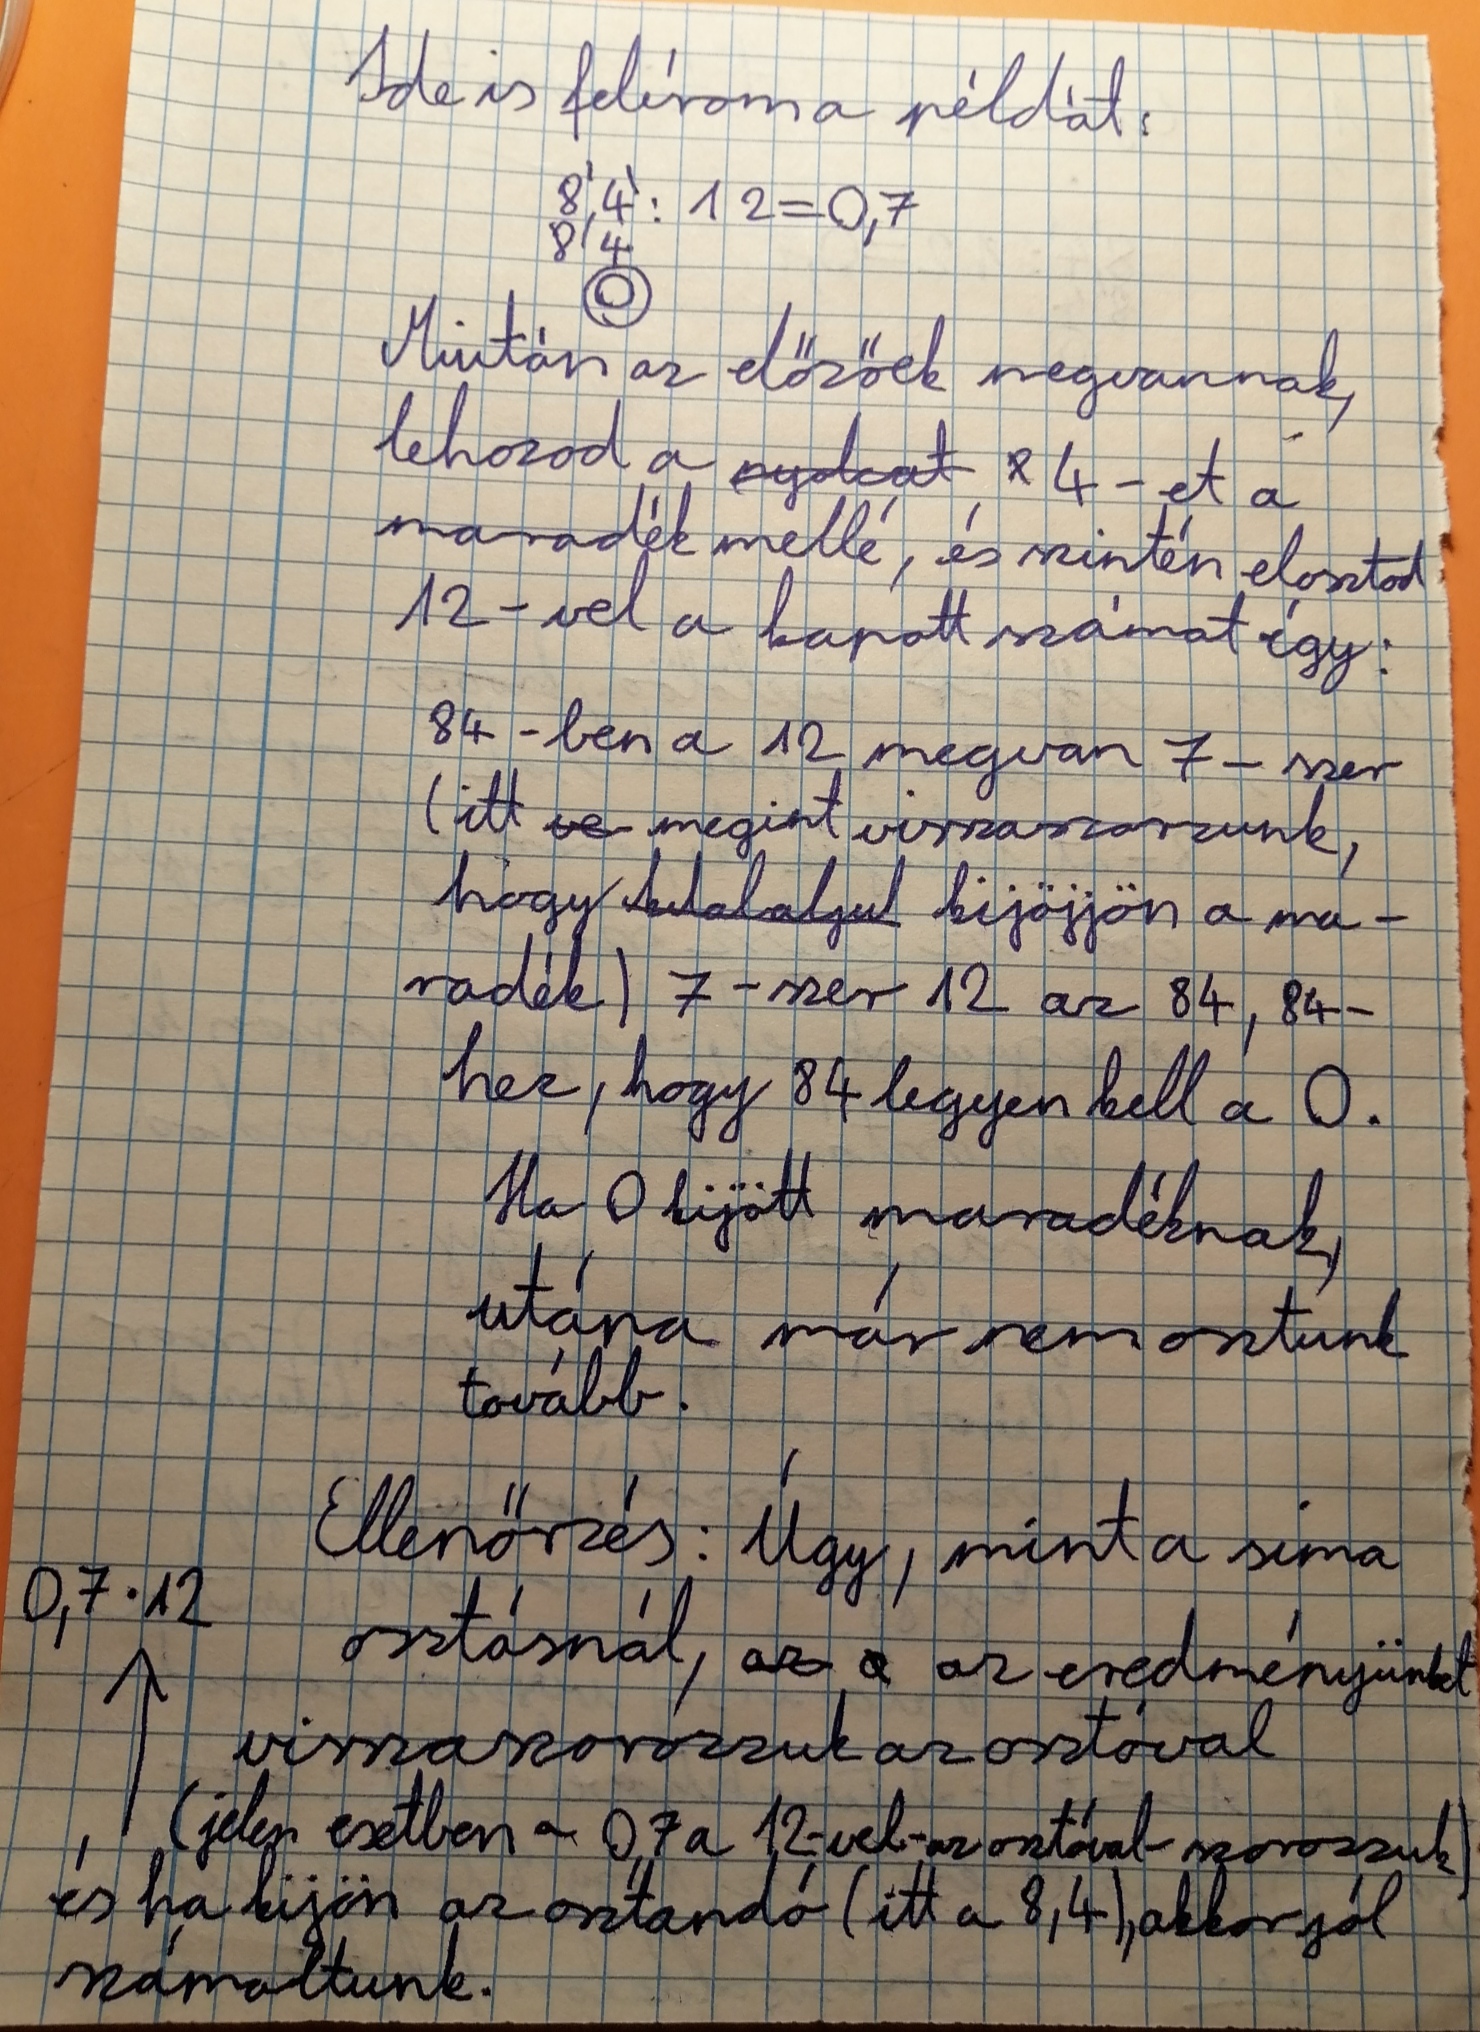 Ide is felírom a példát:
8,4 : 12 = 0,7
8 4
0
Miután az előzőek megvannak,
lehozod a nyolcat 4-et a
maradék mellé, és szintén elosztod
12-vel a kapott számot így:
84-ben a 12 megvan 7-szer
(itt ve megint visszaszorzunk,
hogy kijöjjön a ma-
radék) 7-szer 12 az 84, 84-
hez, hogy 84 legyen kell a 0.
Ha 0 kijött maradéknak,
utána már nem osztunk
tovább.
Ellenőrzés: Úgy, mint a sima
0,7·12
osztásnál, az a az eredményünket
visszaszorozzuk az osztóval
(jelen esetben a 0,7a 12-vel-az osztóval-szorozzuk)
és ha kijön az osztandó (itt a 8,4), akkor jól
számoltunk.